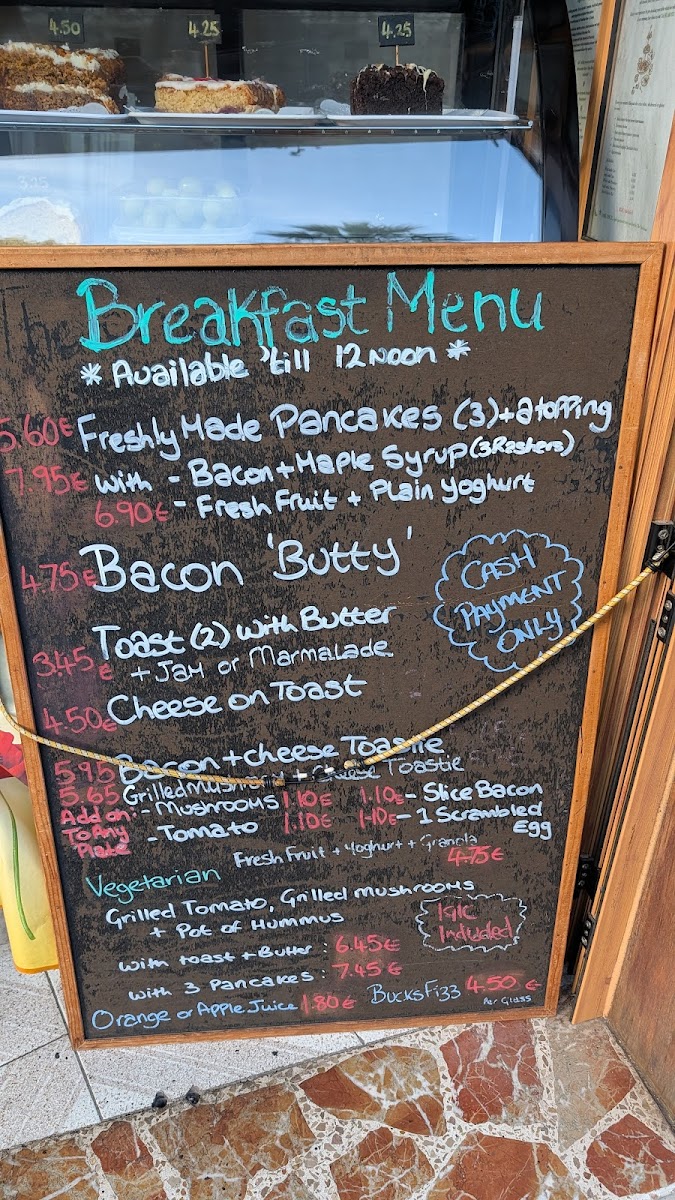 4.50
4.25
4.25
Breakfast Menu
* Available 'till 12 NOON *
5.60€ Freshly Made Pancakes (3) + a topping
7.95€ with - Bacon + Maple Syrup (3 Rashers)
6.90€ - Fresh Fruit + Plain Yoghurt
4.75€ Bacon 'Butty'
CASH
PAYMENT
ONLY
Toast (2) with Butter
3.45€ + Jam or Marmalade
4.50€ Cheese on Toast
5.95 Bacon + cheese Toastie
5.65 Grilled Mushroom Cheese Toastie
Add on: - Mushrooms 1.10€ 1.10€ - Slice Bacon
To Any - Tomato 1.10€ 1.10€ - 1 Scrambled
Plate Egg
Fresh Fruit + Yoghurt + Granola
4.75€
Vegetarian
Grilled Tomato, Grilled mushrooms
+ Pot of Hummus
IGIC
Included
with toast + Butter : 6.45€
with 3 Pancakes : 7.45€
Orange or Apple Juice 1.80€ Bucks Fizz 4.50€
Per Glass